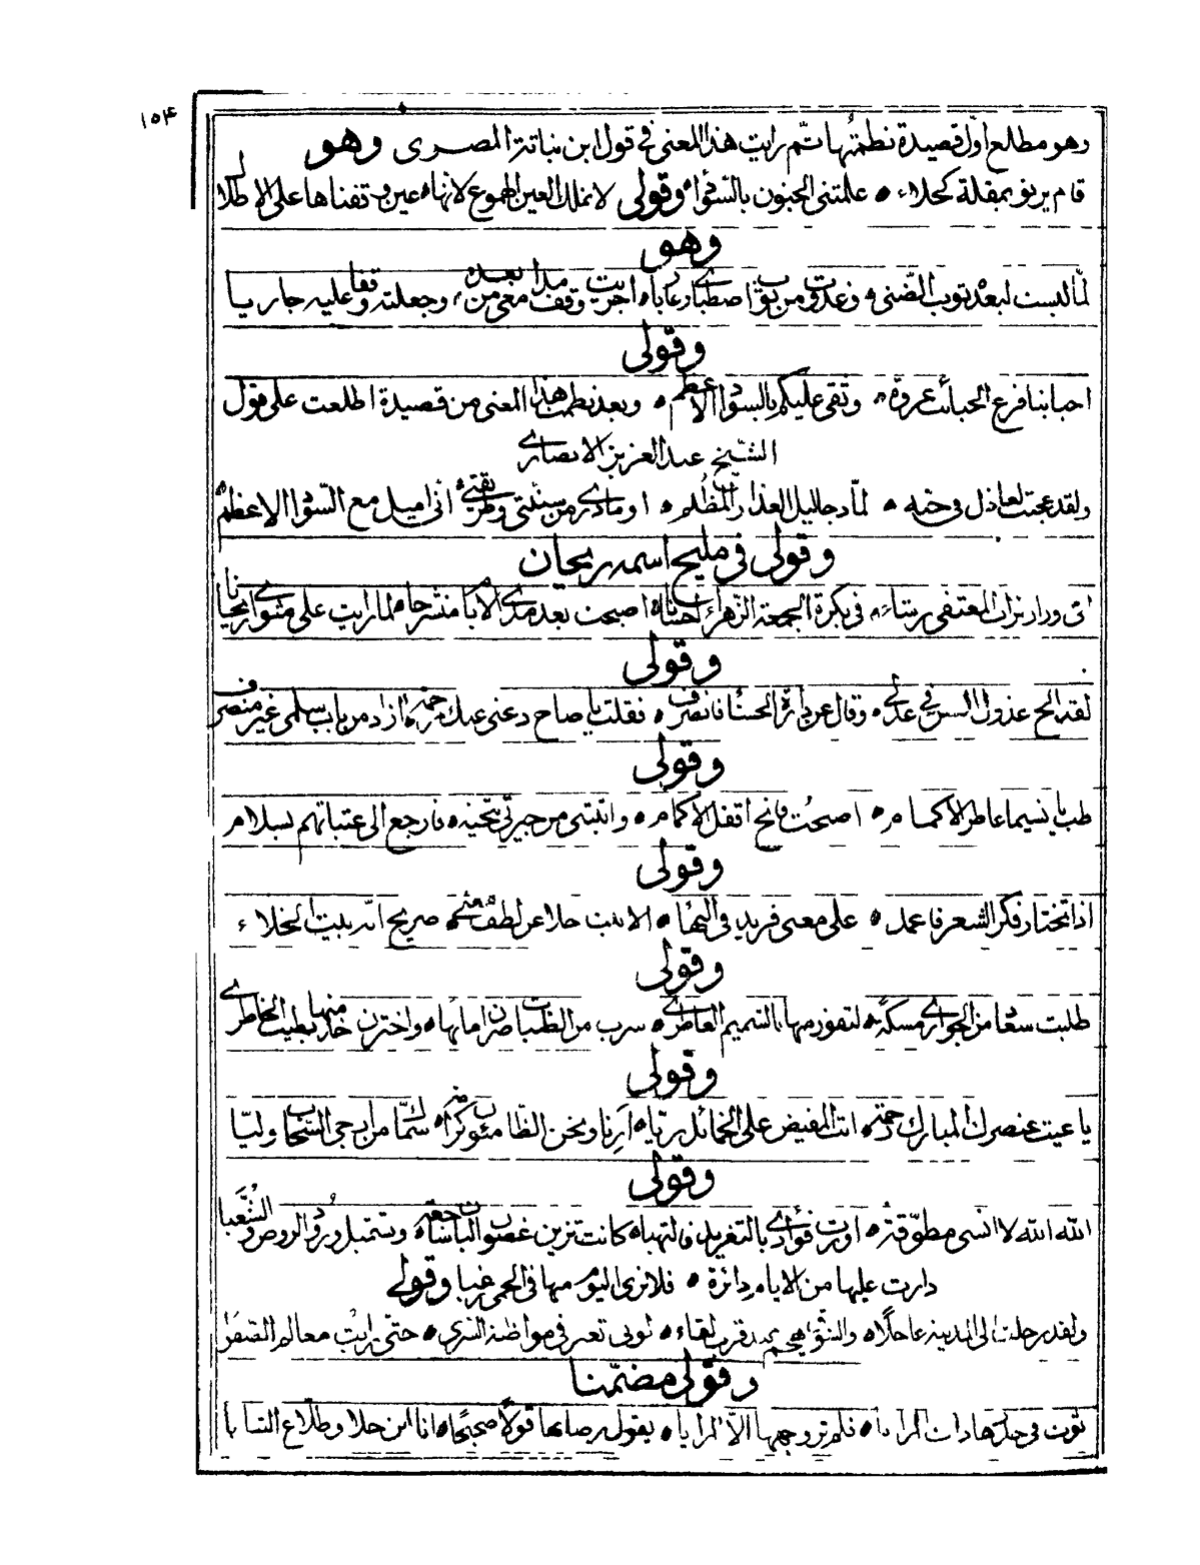 ١٥۴
وهو مطالع اول قصيدة نظمتها ثم رايت هذا المعنى في قول ابن نباتة المصرى وهو
قام يرنو بمقلة كحلاء • علمتني الجنون بالسودا وقولى لا تملك العين الدموع لانها • عين وقفناها على الاطلال
وهو
لما لبست لبعده ثوب الضنى • وغدوت من ثوب اصطبارى عاريا • اجريت وقف مدامعى من بعده • وجعلته وقفا عليه جاريا
وقولى
احبابنا فرع الحبائب عروة • وتقى عليكم بالسواد الاعظم • وبعد نظمى هذا المعنى من قصيدة اطلعت على قول
الشيخ عبد العزيز الانصارى
ولقد عجبت لعاذل فى حبه • لما دجا ليل العذار المظلم • اوما درى من سنتى وطريقتى • انى اميل مع السواد الاعظم
وقولى فى مليح اسمه ريحان
فى بكرة الجمعة الزهراء • اصبحت بعد مدى منشرحا • لما رايت على مثواى ريحانا
وقولى
لقد الح عذول السر فى عذلى • وقال عن دارة الحسنا فانصرف • فقلت يا صاح دعنى عنك • ازاد من باب سلمى غير منصرف
وقولى
طب يا نسيما عاطر الاكمام • اصبحت فاتح اقفل الاكمام • واتيتنى من جيرتى بتحية • فارجع الى عتباتهم بسلام
وقولى
اذا تختار فكر الشعر فاعمد • على معنى فريد فى البهاء • الا بيت خلا عن لطف معنى • صريح انه بيت الخلاء
وقولى
طلبت سعاد من الجوارى مسكة • لتفوز منها بالشميم العاطرى • سرب من الظبيات صرن اماءها • واخترن خدمتها بطيب الخاطرى
وقولى
يا غيث عنصرك المبارك رحمة • انت المفيض على الخمائل ريا • ارنا ونحن الظامئون كرامة • سماك من ازجى السحاب وليا
وقولى
الله الله لا انسى مطوقة • اورت فؤادى بالتغريد فالتهبا • كانت تزين غصون البان ساجعة • وتستميل ورود الروض والشعبا
دارت عليها من الايام دائرة • فلا نرى اليوم منها فى الحمى زغبا وقولى
ولقد رحلت الى المدينة عاجلا • والشوق يهجم عند قرب لقاء • ثوبى تعرى فى مواطنه الثرى • حتى رايت معالم الصفراء
وقولى مضمنا
ثوت فى جلدها ذات المرايا • فلم تر وجهها الا المرايا • يقول رضابها قولا صحيحا • انا ابن جلا وطلاع الثنايا